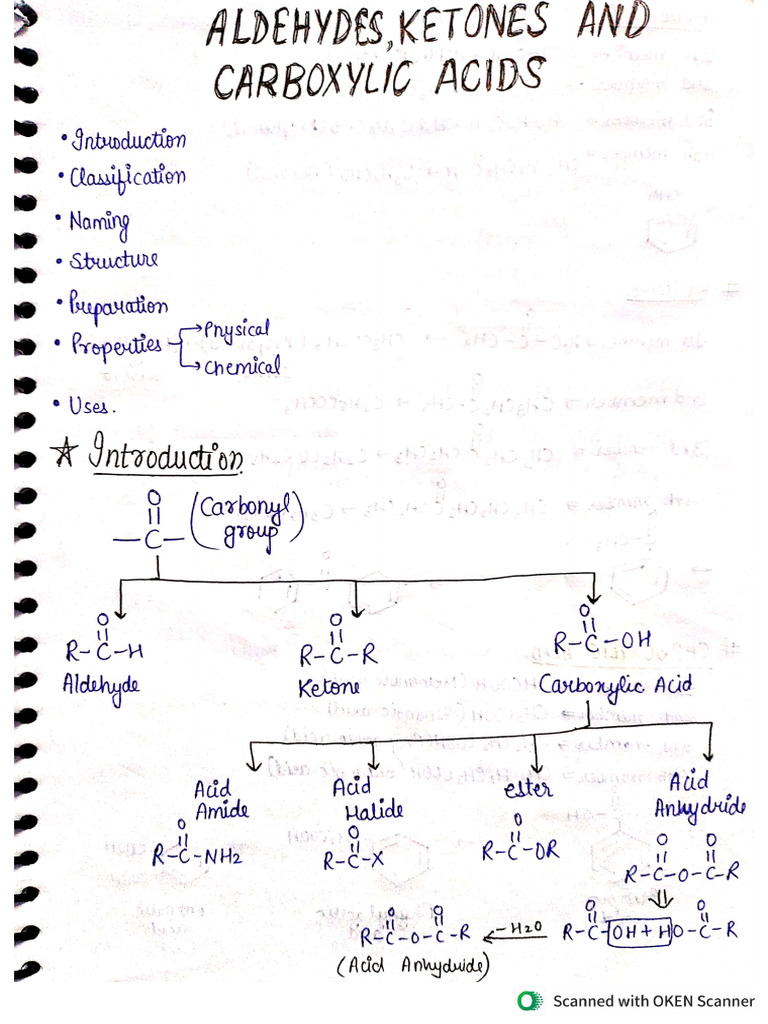 ALDEHYDES, KETONES AND
CARBOXYLIC ACIDS
• Introduction
• Classification
• Naming
• Structure
• Preparation
• Properties → Physical
→ Chemical
• Uses.
☆ Introduction
O
||
—C— (Carbonyl group)
O
||
R-C-H
Aldehyde
O
||
R-C-R
Ketone
O
||
R-C-OH
Carboxylic Acid
Acid
Amide
O
||
R-C-NH2
Acid
Halide
O
||
R-C-X
ester
O
||
R-C-OR
Acid
Anhydride
O O
|| ||
R-C-O-C-R
⇓
O O
|| ||
R-C-OH + HO-C-R
← -H2O
O O
|| ||
R-C-O-C-R
(Acid Anhydride)
Scanned with OKEN Scanner